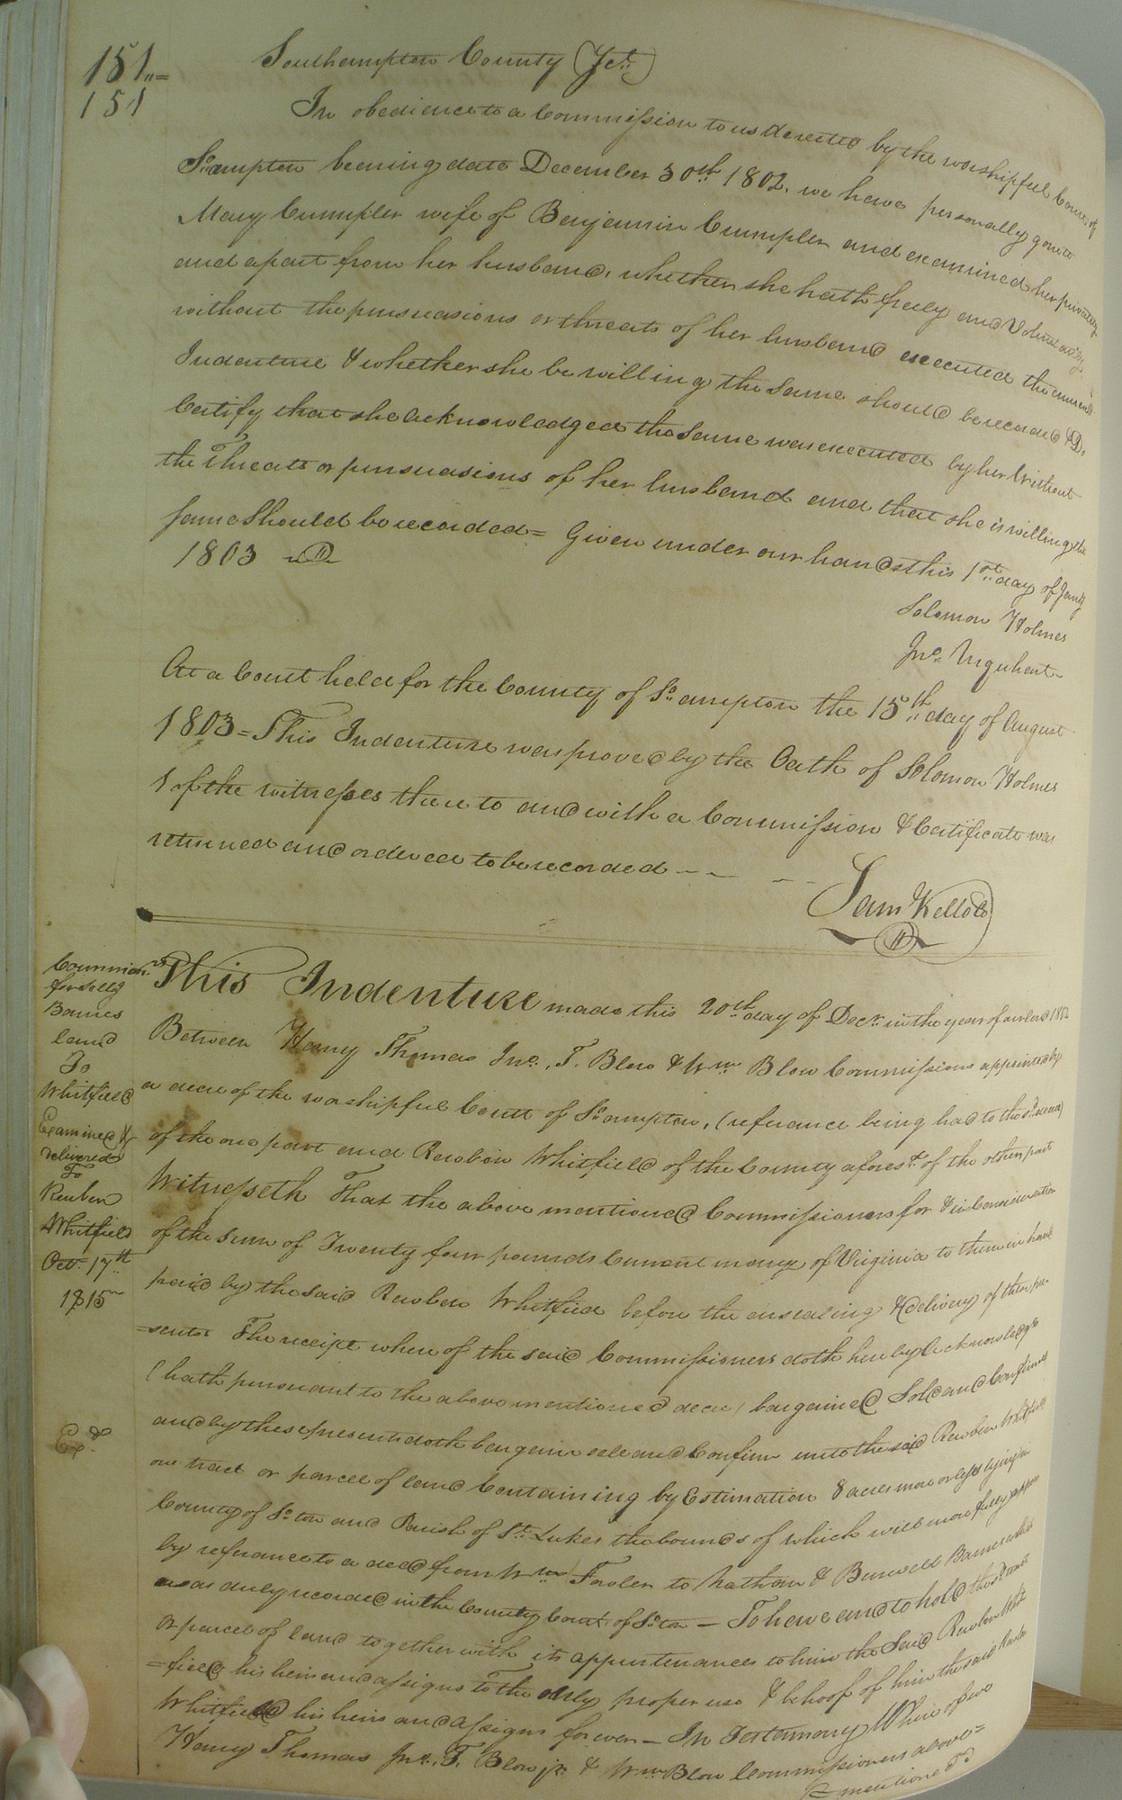 151,,=
151
Southampton County (Jct.)
In obedience to a Commission to us directed by the worshipful Court of
So.ampton bearing date December 30th 1802. we have personally gone to
Mary Crumpler wife of Benjamin Crumpler and examined her privately
and apart from her husband, whether she hath freely and Voluntarily,
without the pursuasions or threats of her husband executed the annexed
Indenture & whether she be willing the same should be recorded &
Certify that she acknowledged the same was executed by her Without
the Threats or pursuasions of her husband and that she is willing the
same Should be recorded = Given under our hands this 1st day of Jany
1803
Solomon Holmes
Jno. Urquhart
At a Court held for the County of So.ampton the 15th day of August
1803 = This Indenture was proved by the Oath of Solomon Holmes
1 of the witnesses there to and with a Commission & Certificate was
returned and ordered to be recorded - - - -
Sam Kello Co
Commrs.
for selly
Barnes
land
To
Whitfield
Examined &
delivered
To
Reuben
Whitfield
Oct. 17th
1815
Exd.
This Indenture made this 20th day of Decr. in the year of our Lord 1802
Between Henry Thomas Jno. T. Blow & Wm Blow Commissions appointed by
a decree of the worshipful Court of So.ampton, (referance being had to the sd. decree)
of the one part and Rewbin Whitfield of the County aforesd. of the other part
Witnesseth That the above mentioned Commissioners for & in Consideration
of the Sum of Twenty four pounds Current money of Virginia to them in hand
paid by the said Rewben Whitfield before the ensealing & delivery of these pre
=sents The receipt where of the said Commissioners doth hereby Acknowledge
(hath pursuant to the above mentioned decree) bargained Sold and Confirmed
and by these presents doth bargain sell and Confirm unto the said Rewben Whitfield
one tract or parcel of land Containing by Estimation 8 acres more or less lying in
County of So.ton and Parish of St. Lukes the bounds of which will more fully appear
by referance to a deed from Wm Fowler to Nathan & Burwell Barnes which
was duly recorded in the County Court of So.ton — To have and to hold the sd. tract
or parcel of land together with its appurtenances to him the Said Rewben Whit
=field his heirs and assigns to the only proper use & behoof of him the said Rewben
Whitfield his heirs and assigns forever — In Testamony Where of we
Henry Thomas Jno. T. Blow jr. & Wm Blow Commissioners above=
mentioned